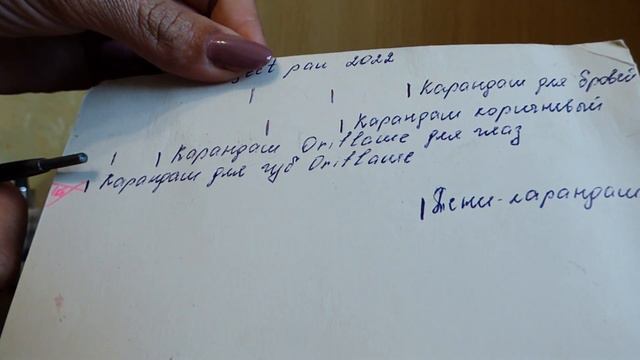 pan 2022
Карандаш для бровей
Карандаш коричневый
Карандаш Oriflame для глаз
Карандаш для губ Oriflame
Тени-карандаш